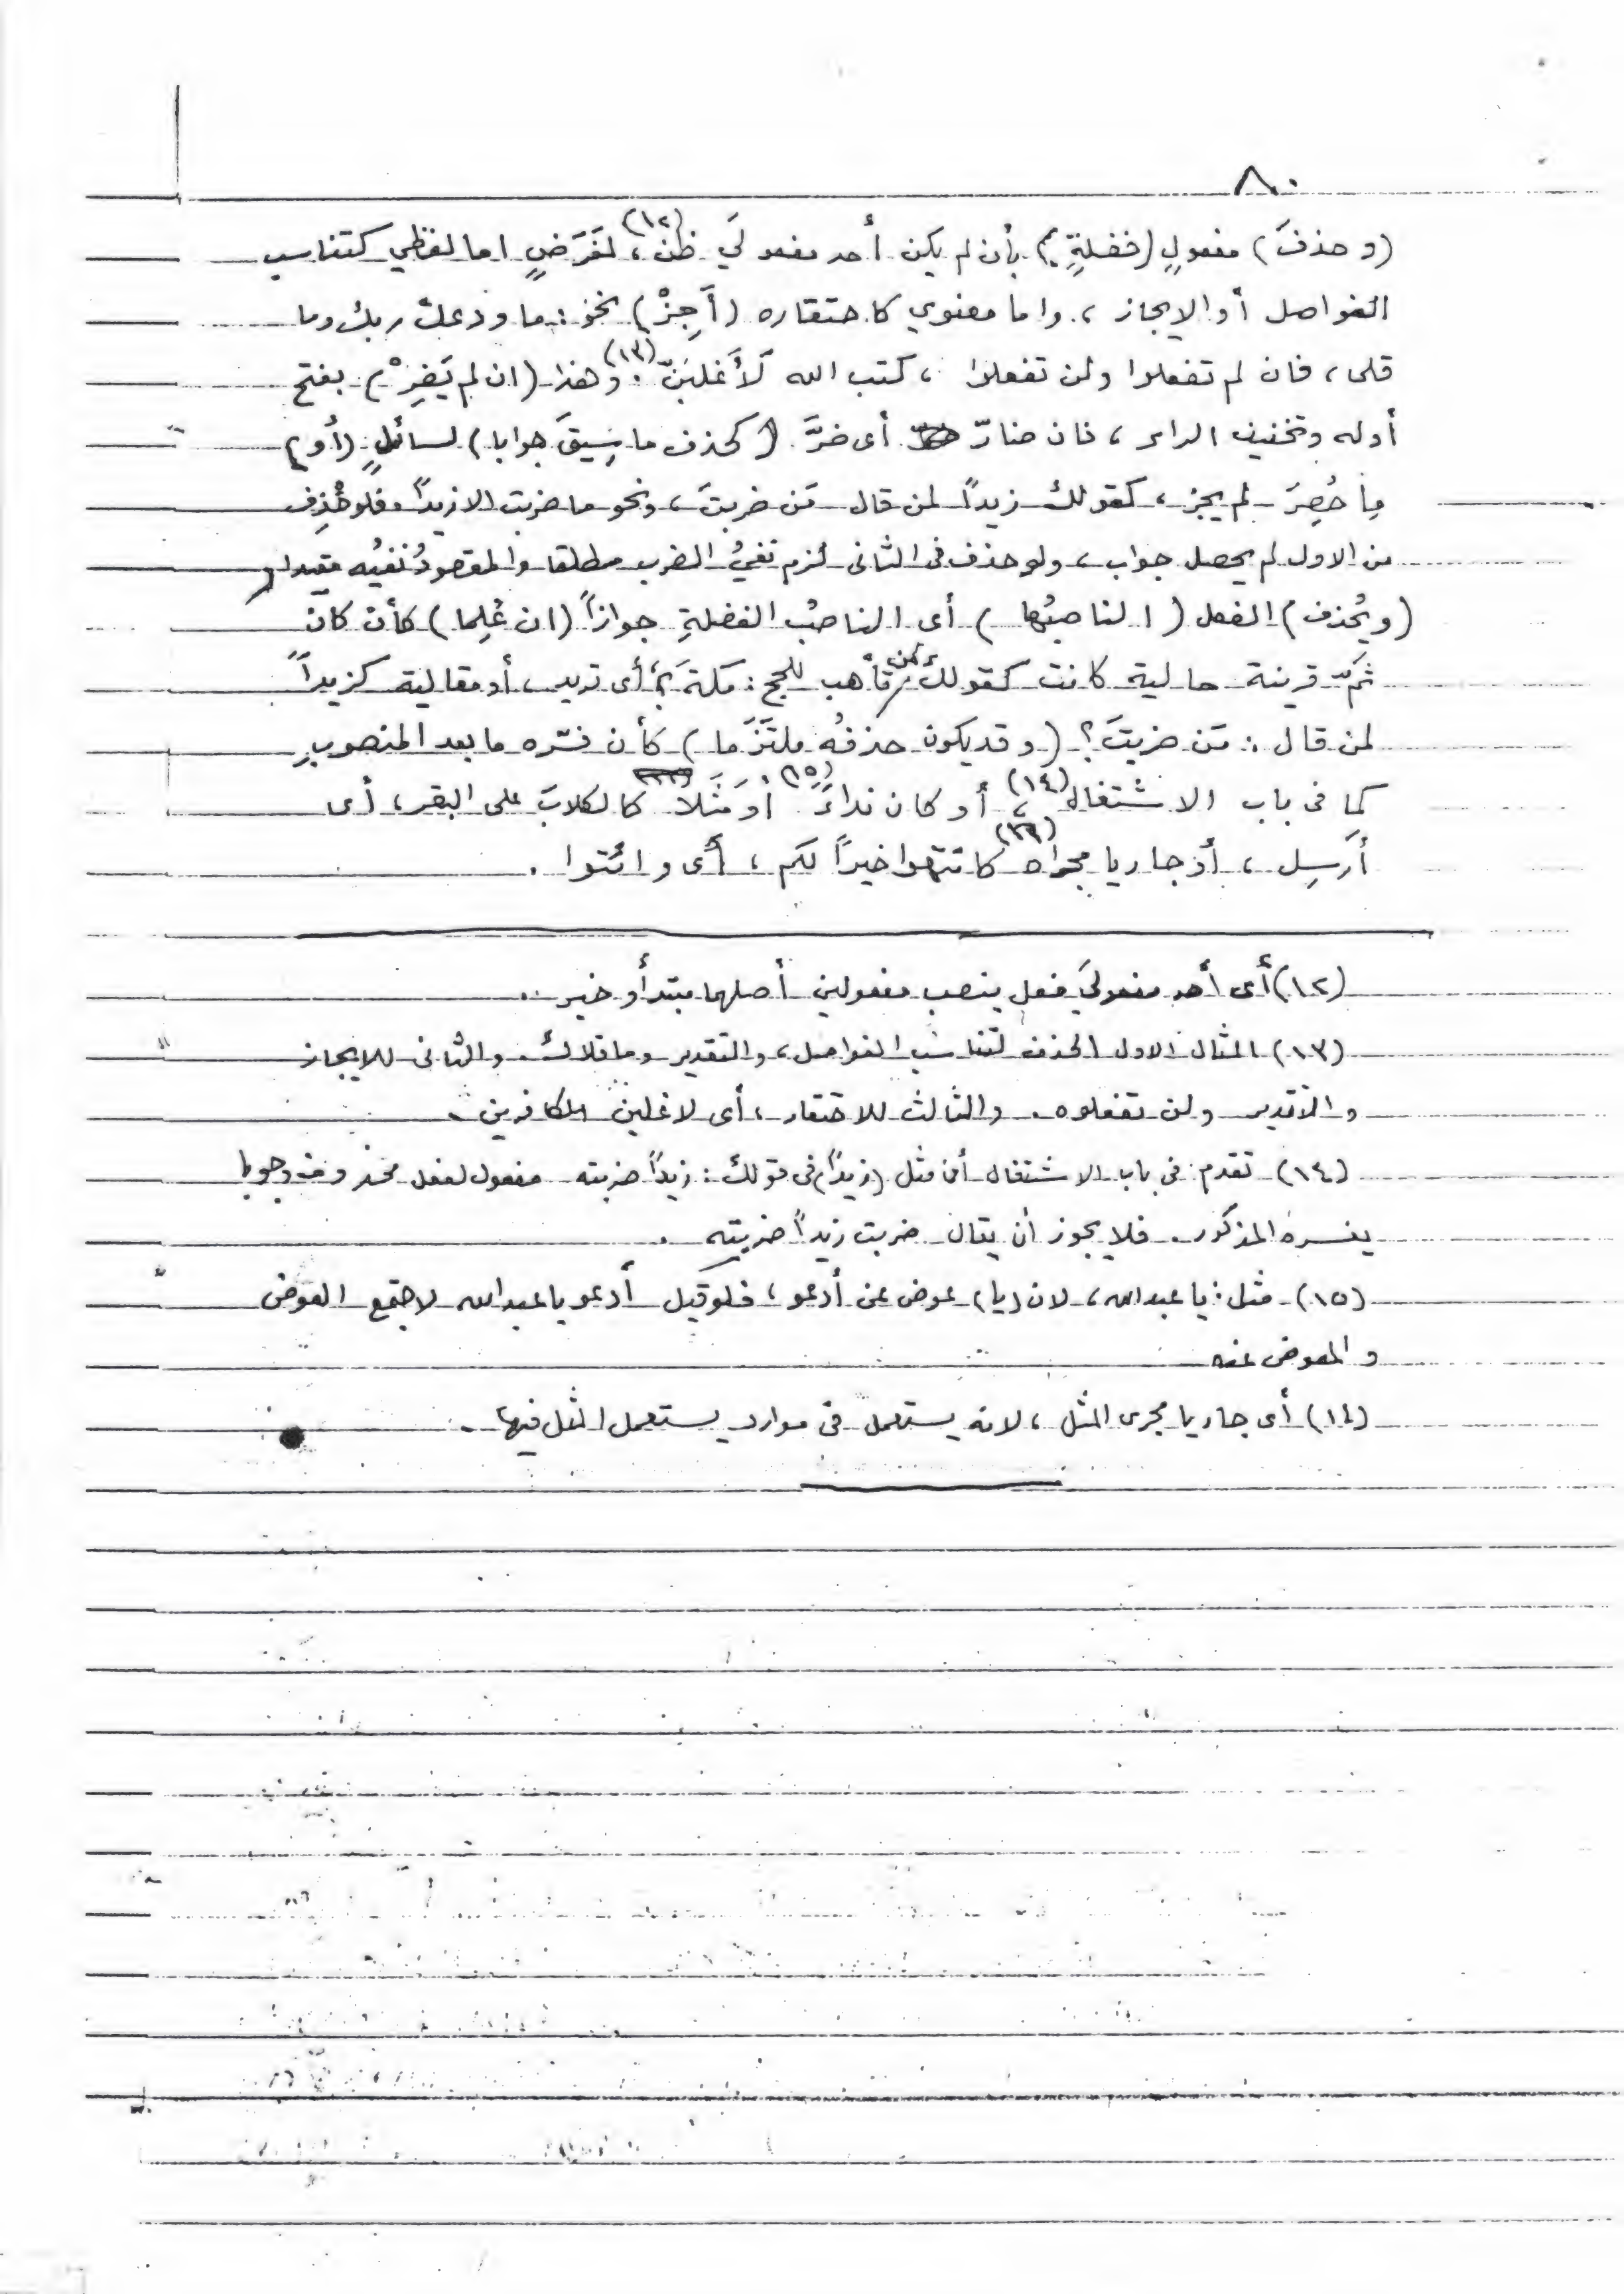 ٨٠
(وحذفَ) مفعولٍ (فضلةٍ) بأن لم يكن أحد مفعولَي ظنّ (١٢)، لغَرَضٍ اما لفظي كتناسب
الفواصل أو الايجاز، واما معنوي كاحتقاره (أَجِزْ) نحو: ما ودعك ربك وما
قلى، فان لم تفعلوا ولن تفعلوا، كتب الله لَأَغلبَنّ (١٣). وهذا (ان لم يَضِرْ) بفتح
أوله وتخفيف الراء، فان ضارّ أى ضرَّ (كحذف ما سِيقَ جوابا) لسائلٍ (أو)
ما حُصِرَ لم يجز، كقولك زيداً لمن قال مَن ضربتَ، ونحو ما ضربت الا زيداً فلو حُذِف
من الاول لم يحصل جواب، ولو حذف فى الثانى لزم نفيُ الضرب مطلقا والمقصودُ نفيُه مقيدا
(ويُحذف) الفعل (الناصبُها) أى الناصبُ الفضلةِ جوازاً (ان عُلِما) كأن كان
ثَمَّ قرينة حالية كانت كقولك لمن تأهب للحج: مكةَ؟ أى تريد، أو مقالية كزيداً
لمن قال: مَن ضربتَ؟ (وقد يكون حذفُه ملتَزَما) كأن فسّره ما بعد المنصوبِ
كما فى باب الاشتغال (١٤)، أو كان نداءً (١٥) أو مَثَلاً كالكلابَ على البقر، أى
أَرسِل، أو جاريا مجراه (١٦) كانتهوا خيراً لكم، أى وائتوا.
(١٢) أى أحد مفعولَي فعل ينصب مفعولين أصلهما مبتدأ و خبر.
(١٣) المثال الاول الحذف لتناسب الفواصل، والتقدير وما قلاك. والثانى للايجاز
والتقدير ولن تفعلوه. والثالث للاحتقار، أى لاغلبن الكافرين.
(١٤) تقدم فى باب الاشتغال أن مثل (زيداً) فى قولك: زيداً ضربته مفعول لفعل محذوف وجوبا
يفسره المذكور. فلا يجوز أن يقال ضربت زيداً ضربته.
(١٥) مثل: يا عبدالله، لان (يا) عوض عن أدعو، فلو قيل أدعو يا عبدالله لاجتمع العوض
و المعوض عنه
(١٦) أى جاريا مجرى المثل، لانه يستعمل فى موارد يستعمل المثل فيها.